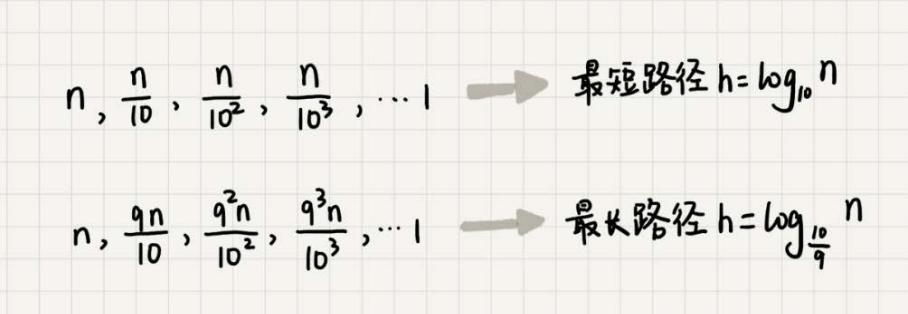 n, n/10, n/10², n/10³, ⋯ 1 → 最短路径 h=log₁₀ n
n, 9n/10, 9²n/10², 9³n/10³, ⋯ 1 → 最长路径 h=log_{10/9} n